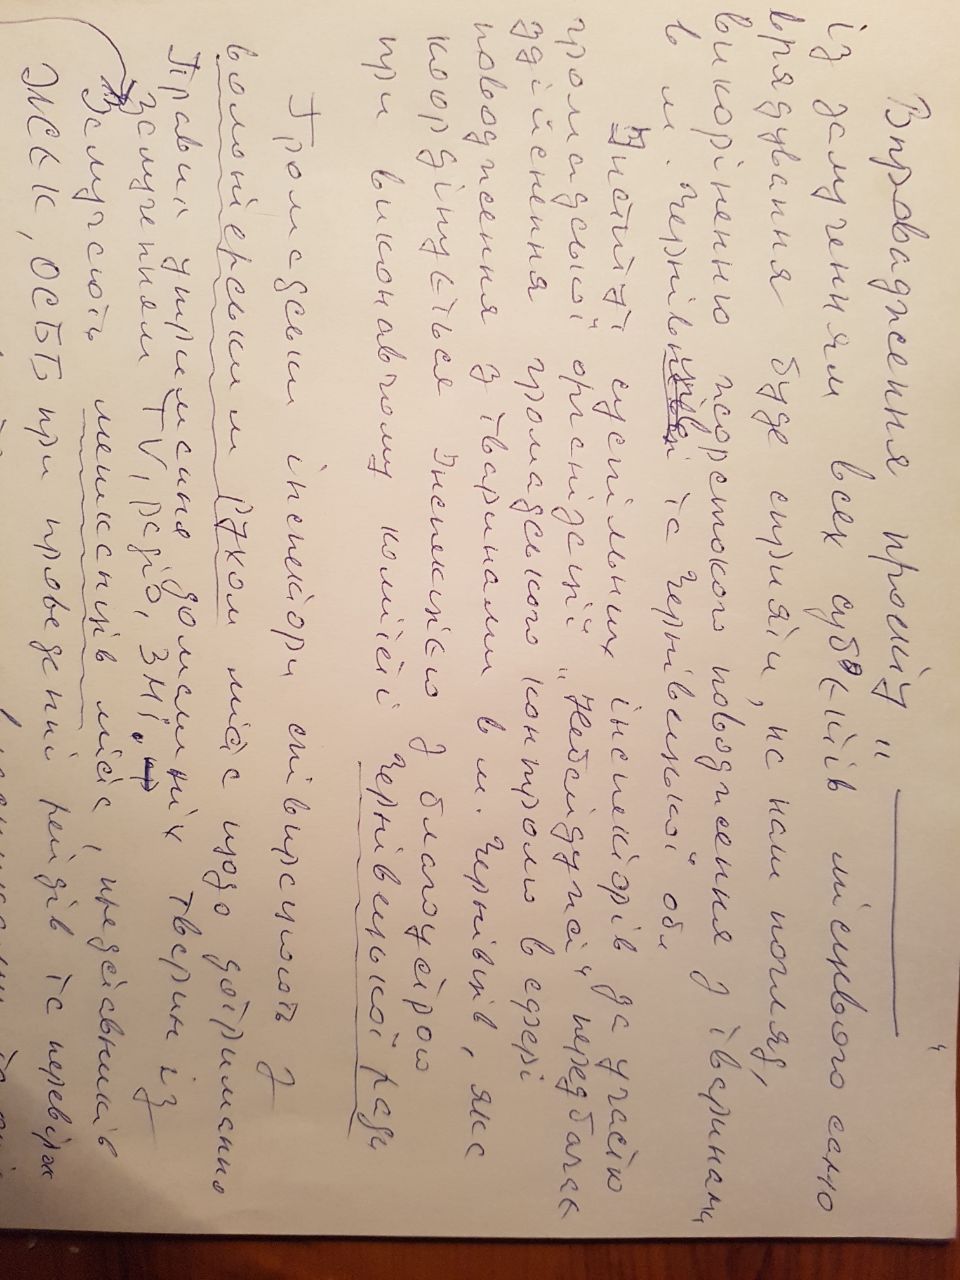 Впровадження проєкту "________"
із залученням всех суб'єктів місцевого само
врядування буде сприяти, на наш погляд,
викоріненню жорстокого поводження з тваринами
в м. Чернівці та Чернівецькій обл
Інститут суспільних інспекторів за участю
громадської організації "Небайдужі" передбачає
здійснення громадського контролю в сфері
поводження з тваринами в м. Чернівці, яка
координується Інспекцією з благоустрою
при виконавчому комітеті Чернівецької ради
Громадськи інспектори співпрацюють з
волонтерським рухом міста щодо дотриманню
Правил утримання домашніх тварин із
залученням TV, радіо, ЗМІ.
Залучають мешканців міста, представників
ЖКК, ОСББ при проведенні рейдів та перевірок